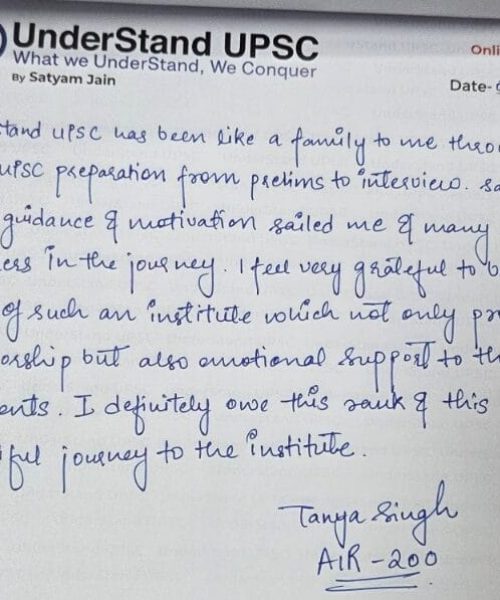 UnderStand UPSC
What we UnderStand, We Conquer
By Satyam Jain
Onli
Date-
tand UPSC has been like a family to me thro
UPSC preparation from prelims to interview. Sa
guidance & motivation sailed me & many
ess in the journey. I feel very grateful to b
of such an institute which not only pr
orship but also emotional support to th
ents. I definitely owe this rank & this
iful journey to the institute.
Tanya Singh
AIR - 200